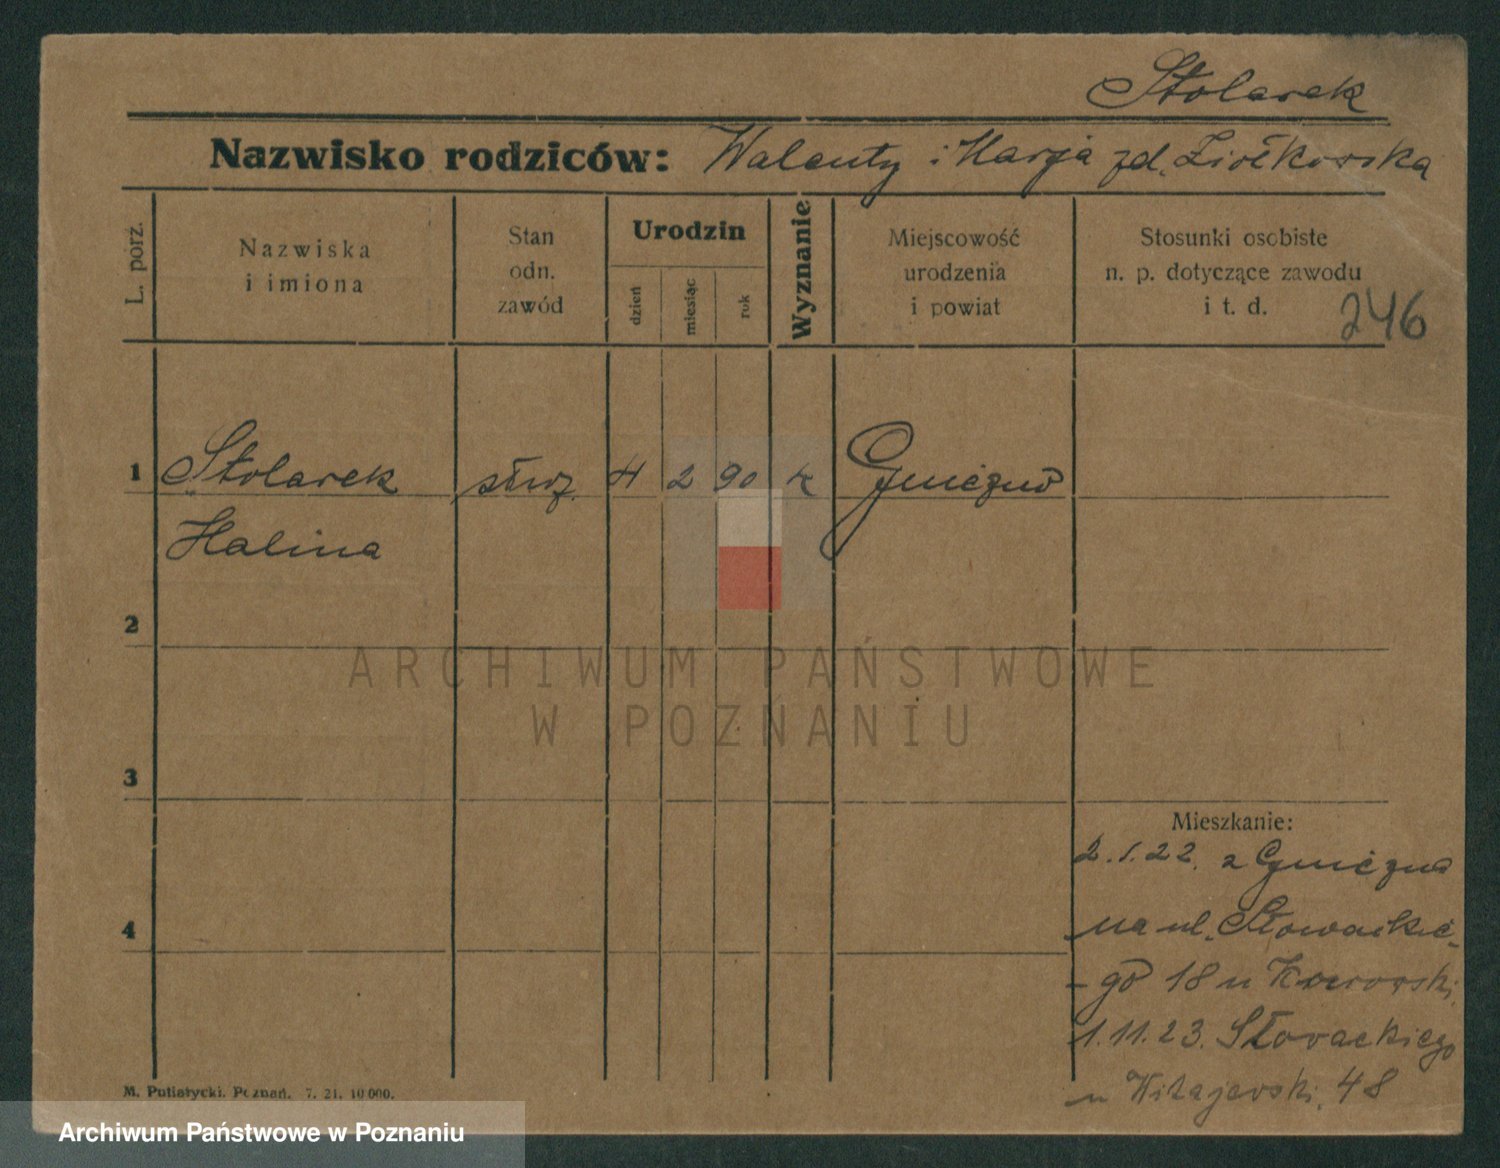 Stolarek
Nazwisko rodziców: Walenty i Marja zd. Ziółkowska
L. porz.
Nazwiska
i imiona
Stan
odn.
zawód
Urodzin
dzień
miesiąc
rok
Wyznanie
Miejscowość
urodzenia
i powiat
Stosunki osobiste
n. p. dotyczące zawodu
i t. d.
246
1 Stolarek służ. 4 2 90 k Gniezno
Halina
2
ARCHIWUM PAŃSTWOWE
W POZNANIU
3
Mieszkanie:
2.1.22. z Gniezna
na ul. Słowackie-
4
-go 18 u
1.11.23. Słowackiego
u 48
M. Putiatycki. Poznań. 7. 21. 10 000.
Archiwum Państwowe w Poznaniu